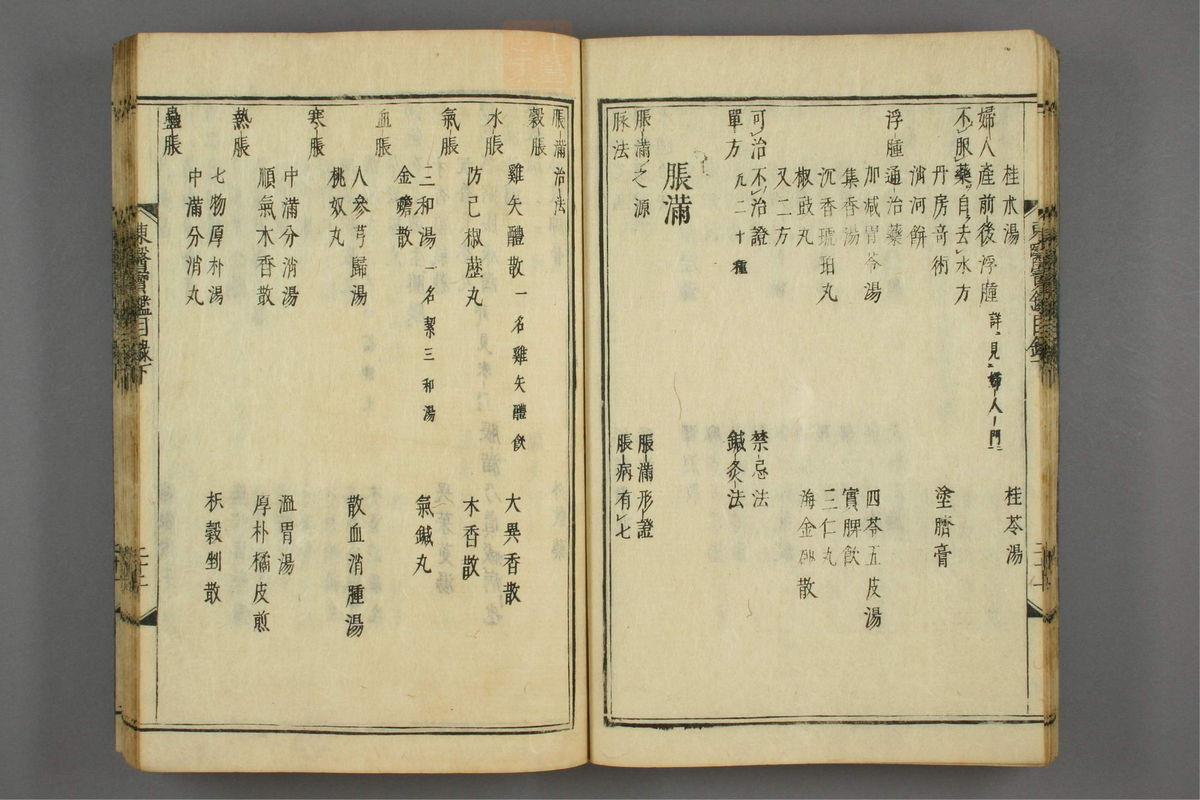 桂朮湯 桂苓湯
婦人產前後浮腫 詳見婦人門
不服藥自去水方
丹房奇術 塗臍膏
消河餅
浮腫通治藥
加減胃苓湯 四苓五皮湯
集香湯 實脾飲
沉香琥珀丸 三仁丸
椒豉丸 海金砂散
又二方
可治不治證 禁忌法
單方 凡二十種 鍼灸法
脹滿
脹滿之源 脹滿形證
脈法 脹病有七
脹滿治法
穀脹
雞矢醴散 一名雞矢醴飲 大異香散
水脹
防己椒藶丸 木香散
氣脹
三和湯 一名絜三和湯 氣鍼丸
金蟾散
血脹
人參芎歸湯 散血消腫湯
桃奴丸
寒脹
中滿分消湯 溫胃湯
順氣木香散 厚朴橘皮煎
熱脹
七物厚朴湯 枳殼剉散
中滿分消丸
蠱脹
東醫寶鑑目錄下